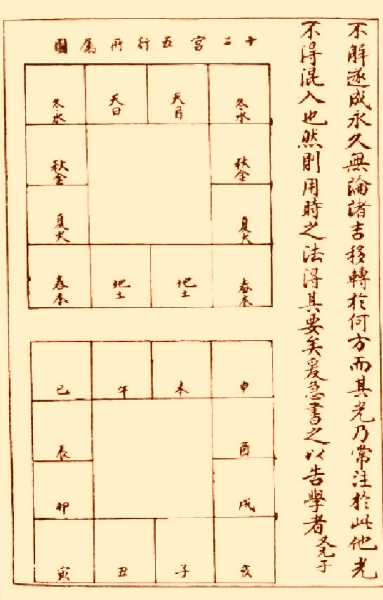 不解遂成永久無論諸吉移轉於何方而其光乃常注於此他光
不得混入也然則用時之法得其要矣爰急書之以告學者
十二宮五行所屬圖
冬水 天月 天日 冬水
秋金 秋金
夏火 夏火
春木 地土 地土 春木
申 未 午 巳
酉 辰
戌 卯
亥 子 丑 寅